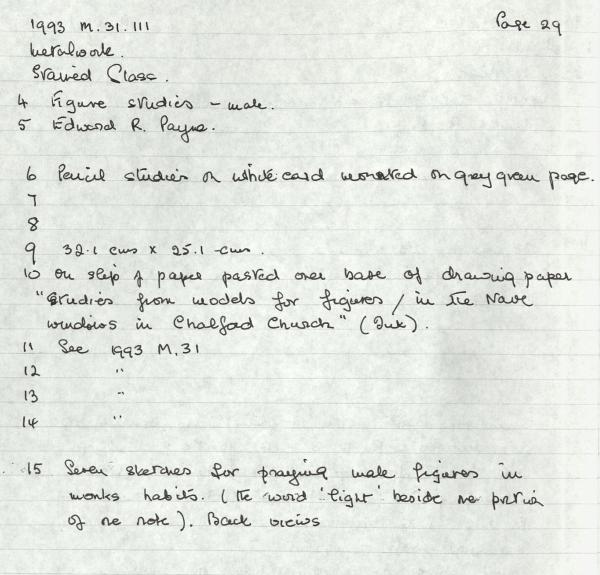 1993 M.31.III Page 29
Metalwork.
Stained Glass.
4 Figure studies - male.
5 Edward R. Payne.
6 Pencil studies on white card mounted on grey green page.
7
8
9 32.1 cms x 25.1 cms.
10 On slip of paper pasted over base of drawing paper
"Studies from models for figures / in the Nave
windows in Chalford Church" (Ink).
11 See 1993 M.31
12 "
13 "
14 "
15 Seven sketches for praying male figures in
monks habits. (The word 'light' beside
of note). Back views